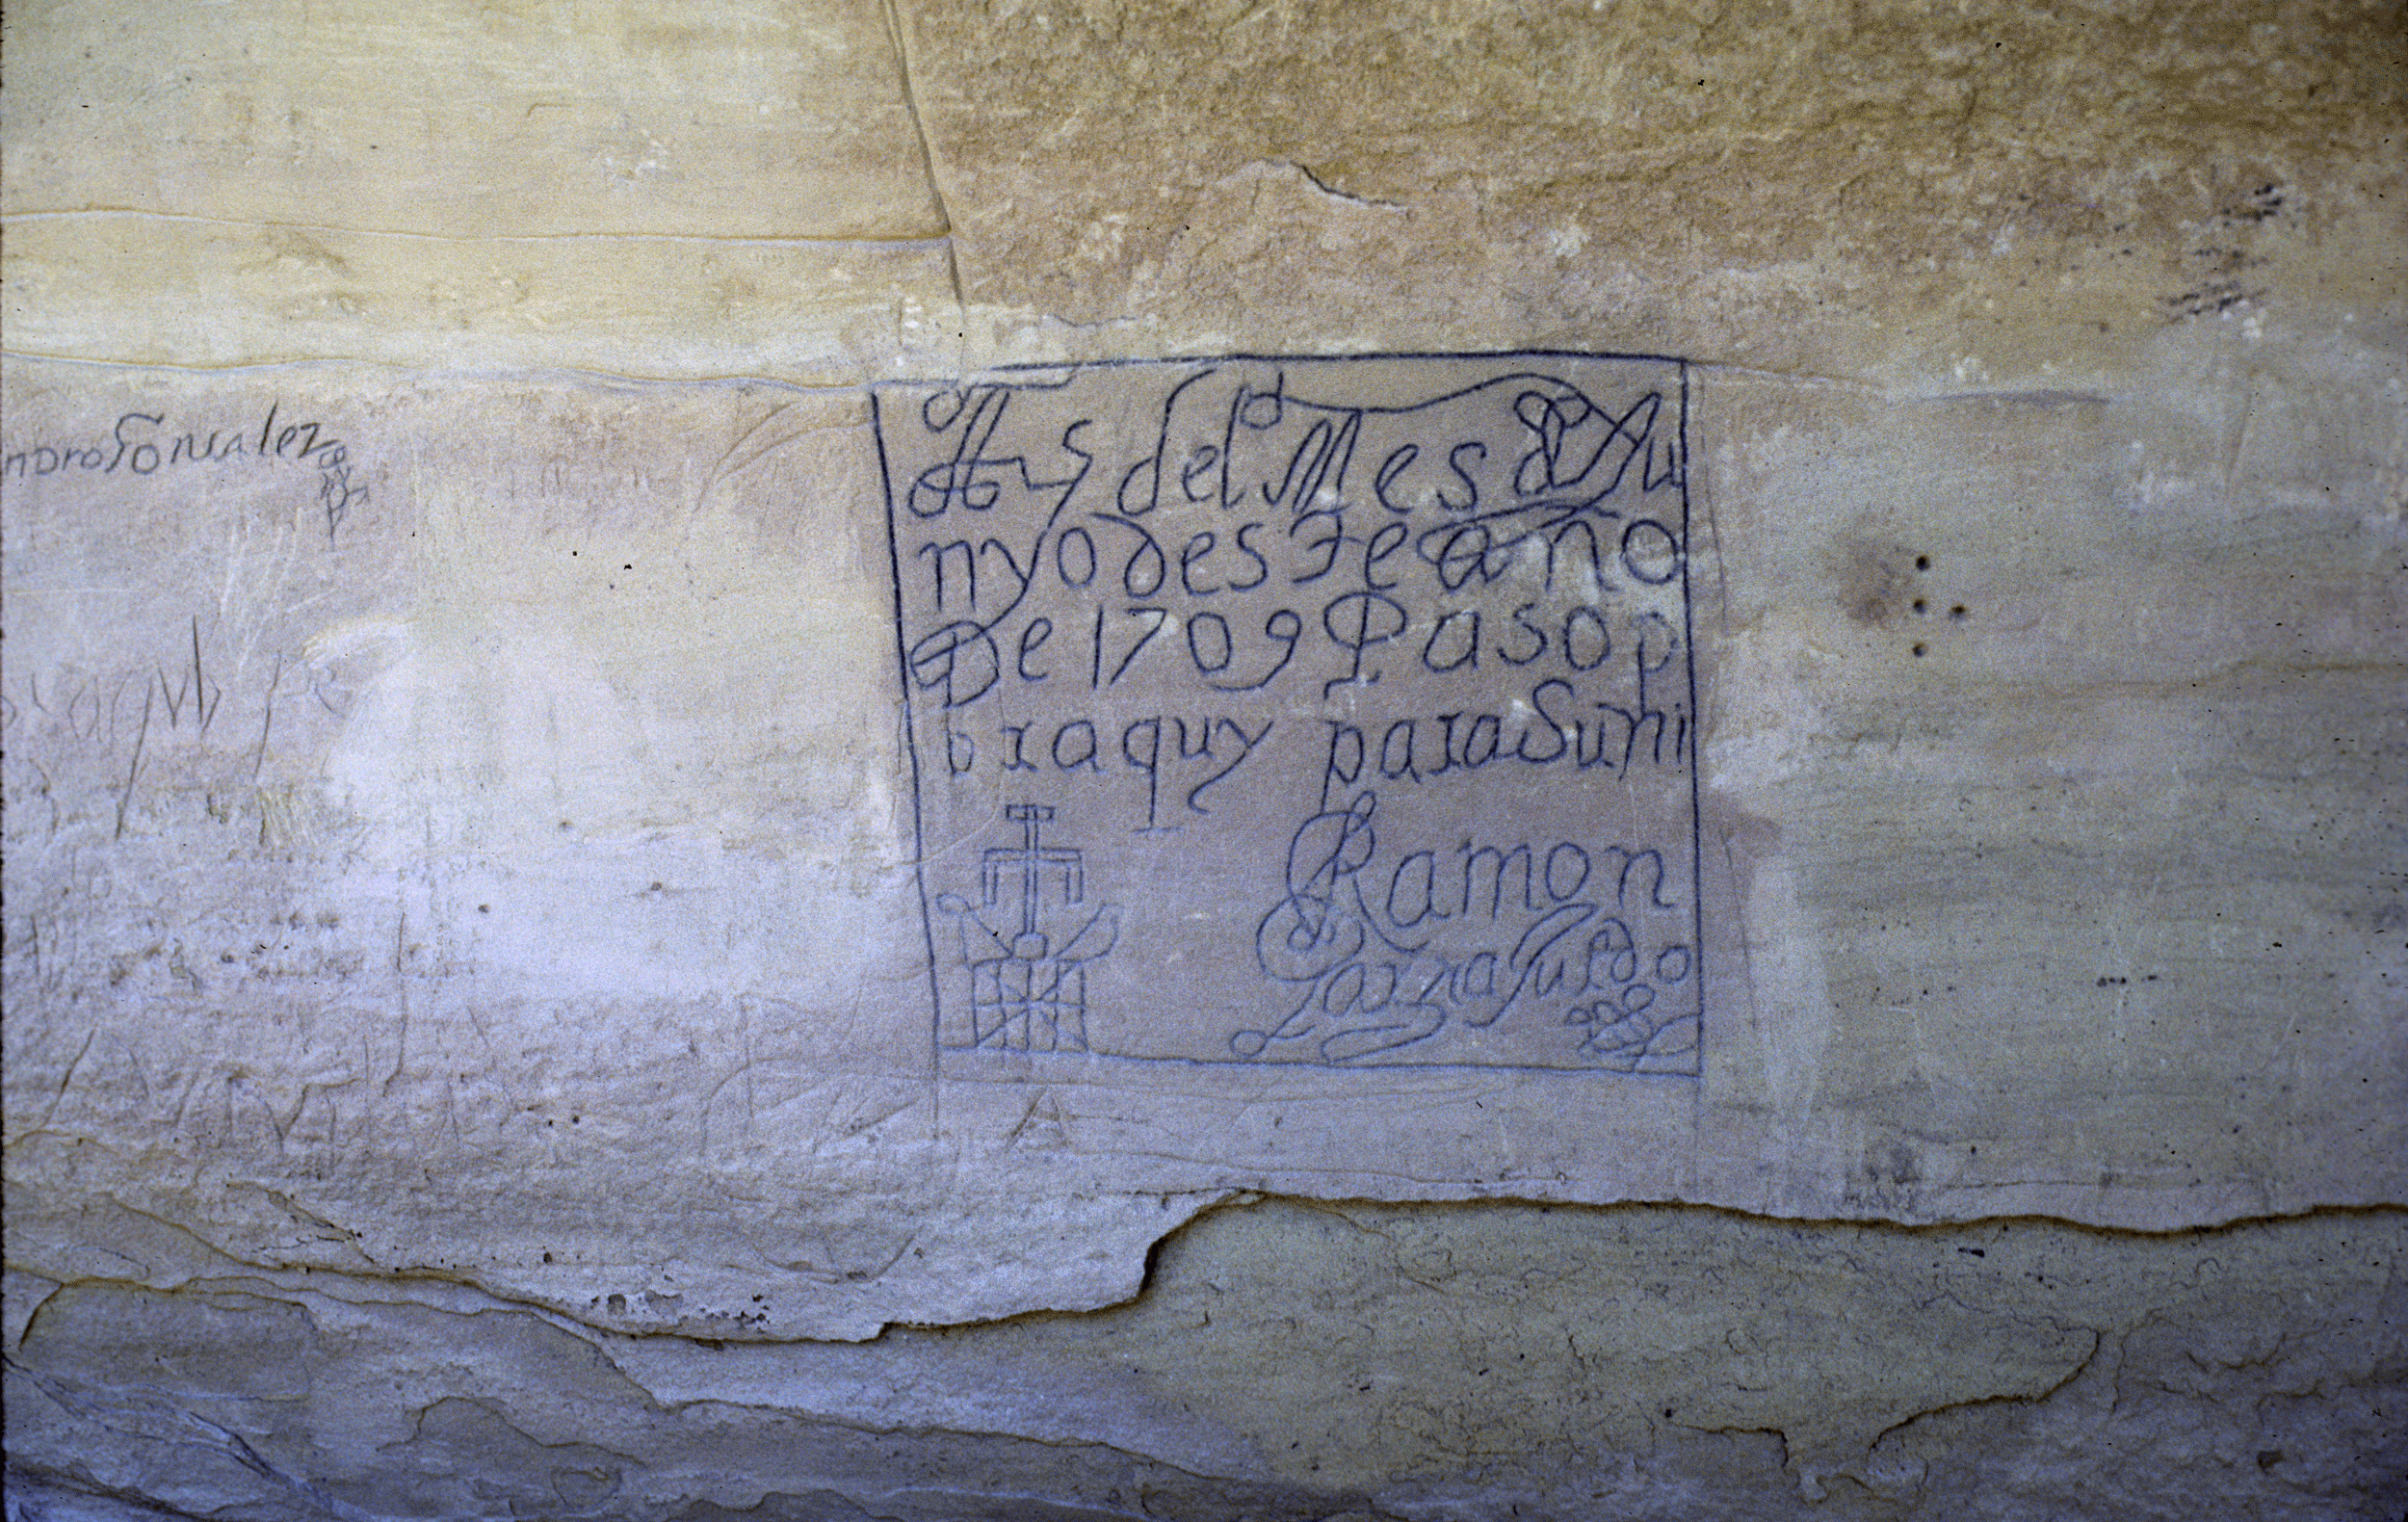 ndro Gonsalez
A 5 del Mes d Ju
nyo deste año
De 1709 Paso p
or aquy para Suñi
Ramon
Garzia Jurdo